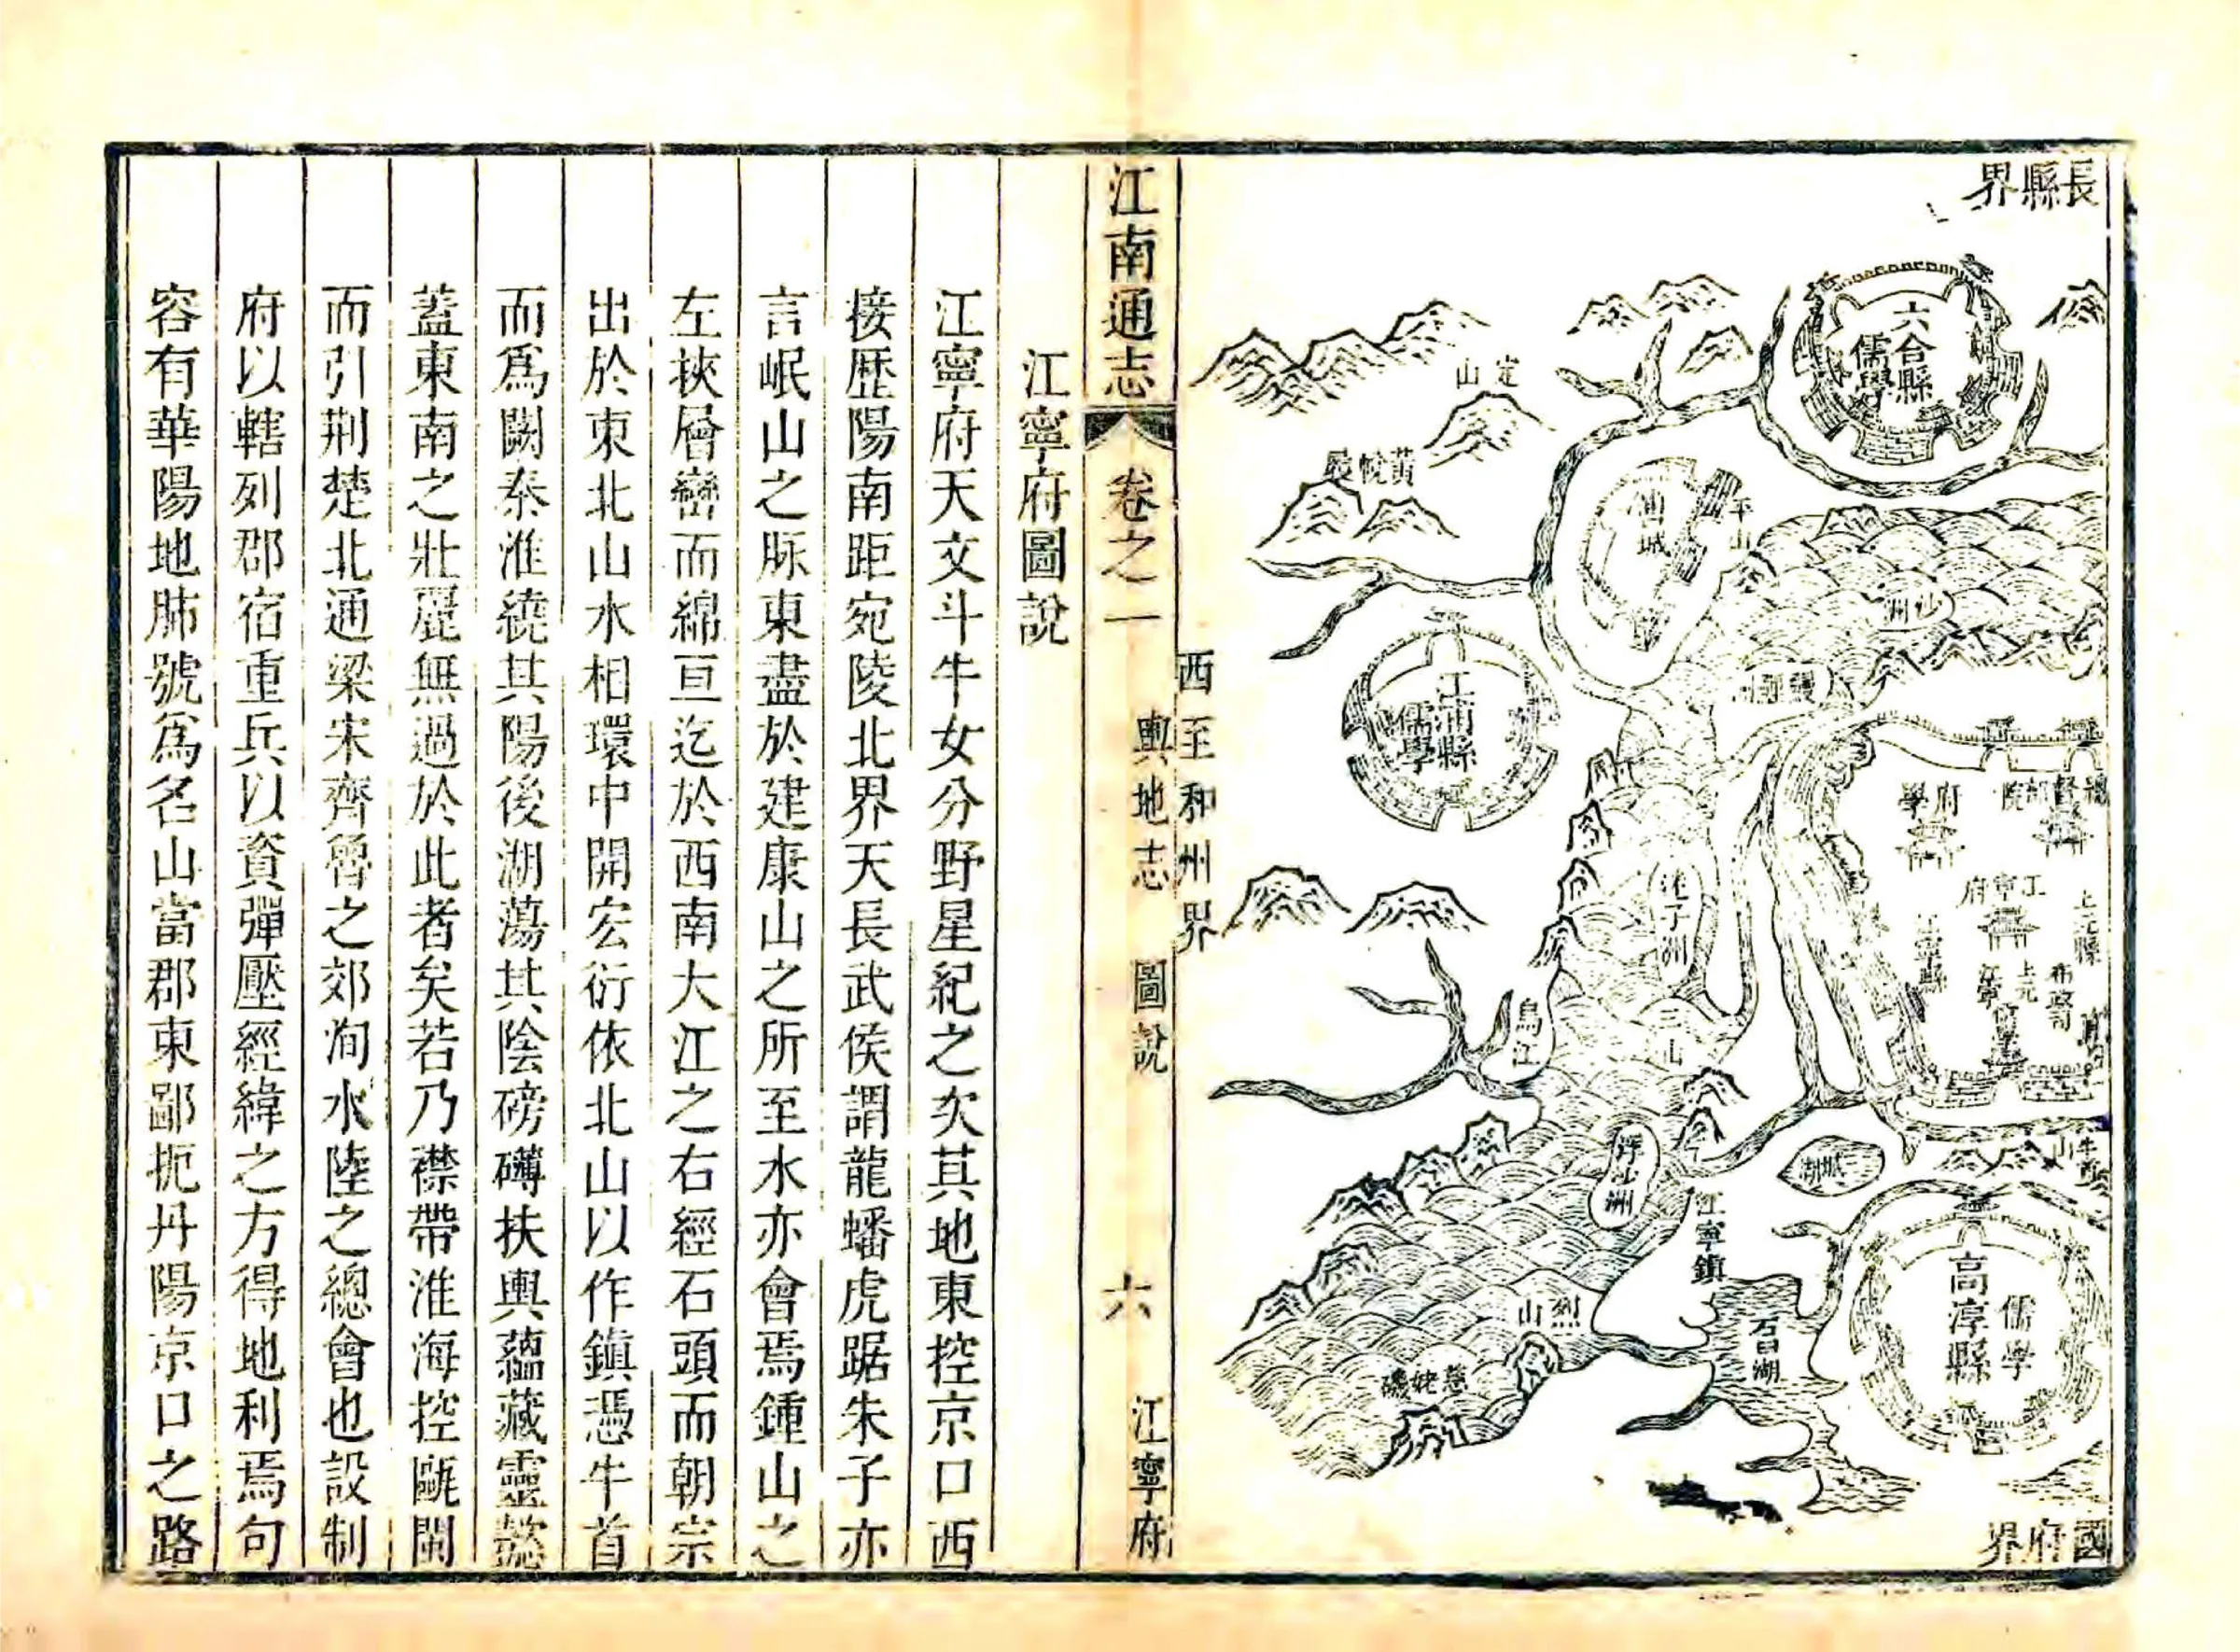 長縣界
六合縣
儒學
定山
黃悅嶺
沙洲
江浦縣
儒學
府學
江寧府
上元縣
江寧縣
上元
烏江
三山
浮沙洲
江寧鎮
烈山
慈姥磯
石臼湖
高淳縣
儒學
國府界
西至和州界
江南通志
卷之一
輿地志
圖說
六
江寧府
江寧府圖說
江寧府天文斗牛女分野星紀之次其地東控京口西
接歷陽南距宛陵北界天長武侯謂龍蟠虎踞朱子亦
言岷山之脈東盡於建康山之所至水亦會焉鍾山之
左挾層巒而綿亘迄於西南大江之右經石頭而朝宗
出於東北山水相環中開宏衍依北山以作鎮憑牛首
而爲闕秦淮繞其陽後湖蕩其陰磅礴扶輿蘊藏靈懿
蓋東南之壯麗無過於此者矣若乃襟帶淮海控甌閩
而引荆楚北通梁宋齊魯之郊洵水陸之總會也設制
府以轄列郡宿重兵以資彈壓經緯之方得地利焉句
容有華陽地肺號爲名山當郡東鄙扼丹陽京口之路